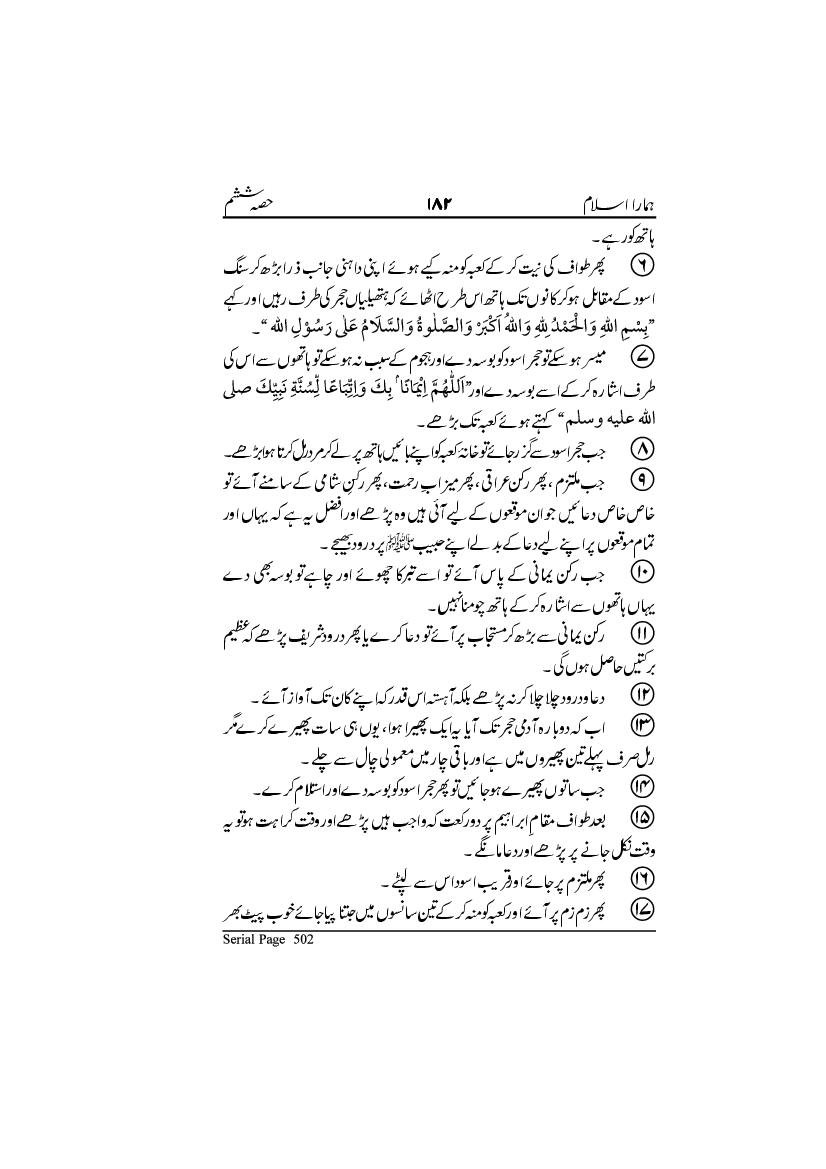 ہمارا اسلام ۱۸۲ حصہ ششم
ہاتھ کور ہے ۔
۶ پھر طواف کی نیت کر کے کعبہ کو منہ کیے ہوئے اپنی داہنی جانب ذرا بڑھ کر سنگ
اسود کے مقابل ہو کر کانوں تک ہاتھ اس طرح اٹھائے کہ ہتھیلیاں حجر کی طرف رہیں اور کہے
”بِسْمِ اللهِ وَالْحَمْدُ لِلّٰهِ وَاللهُ اَكْبَرْ وَالصَّلٰوةُ وَالسَّلَامُ عَلٰى رَسُوْلِ الله“۔
۷ میسر ہو سکے تو حجر اسود کو بوسہ دے اور ہجوم کے سبب نہ ہو سکے تو ہاتھوں سے اس کی
طرف اشارہ کر کے اسے بوسہ دے اور ”اَللّٰهُمَّ اِيْمَانًا ۢ بِكَ وَاِتِّبَاعًا لِّسُنَّةِ نَبِيِّكَ صلى
الله عليه وسلم“ کہتے ہوئے کعبہ تک بڑھے ۔
۸ جب حجر اسود سے گزر جائے تو خانۂ کعبہ کو اپنے بائیں ہاتھ پر لے کر مرد رمل کرتا ہوا بڑھے۔
۹ جب ملتزم ، پھر رکن عراقی ، پھر میزابِ رحمت، پھر رکنِ شامی کے سامنے آئے تو
خاص خاص دعائیں جو ان موقعوں کے لیے آئی ہیں وہ پڑھے اور افضل یہ ہے کہ یہاں اور
تمام موقعوں پر اپنے لیے دعا کے بدلے اپنے حبیب ﷺ پر درود بھیجے ۔
۱۰ جب رکن یمانی کے پاس آئے تو اسے تبرکا چھوئے اور چاہے تو بوسہ بھی دے
یہاں ہاتھوں سے اشارہ کر کے ہاتھ چومنا نہیں ۔
۱۱ رکن یمانی سے بڑھ کر مستجاب پر آئے تو دعا کرے یا پھر درود شریف پڑھے کہ عظیم
برکتیں حاصل ہوں گی ۔
۱۲ دعا و درود چلا چلا کر نہ پڑھے بلکہ آہستہ اس قدر کہ اپنے کان تک آواز آئے ۔
۱۳ اب کہ دوبارہ آدمی حجر تک آیا یہ ایک پھیرا ہوا، یوں ہی سات پھیرے کرے مگر
رمل صرف پہلے تین پھیروں میں ہے اور باقی چار میں معمولی چال سے چلے ۔
۱۴ جب ساتوں پھیرے ہو جائیں تو پھر حجر اسود کو بوسہ دے اور استلام کرے۔
۱۵ بعد طواف مقام ابراہیم پر دو رکعت کہ واجب ہیں پڑھے اور وقت کراہت ہو تو یہ
وقت نکل جانے پر پڑھے اور دعا مانگے ۔
۱۶ پھر ملتزم پر جائے اور قریب اسود اس سے لپٹے ۔
۱۷ پھر زم زم پر آئے اور کعبہ کو منہ کر کے تین سانسوں میں جتنا پیا جائے خوب پیٹ بھر
Serial Page 502